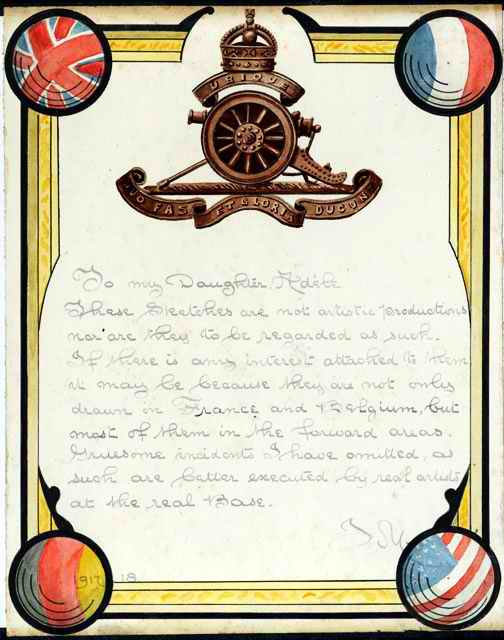 UBIQUE
QUO FAS ET GLORIA DUCUNT
To my Daughter Adèle
These Sketches are not artistic productions
nor are they to be regarded as such.
If there is any interest attached to them,
it may be because they are not only
drawn in France and Belgium, but
most of them in the forward areas.
Gruesome incidents I have omitted, as
such are better executed by real artists
at the real Base.
1917-18